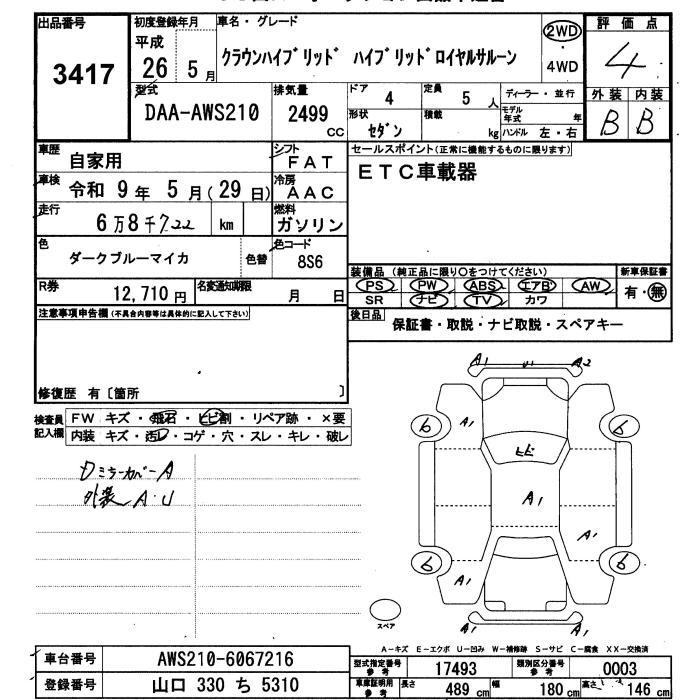 出品番号 初度登録年月 車名・グレード 評価点
3417 平成 26 年 5 月 クラウンハイブリッド ハイブリッドロイヤルサルーン 2WD・4WD 4
型式 排気量 ドア 4 定員 5 人 ディーラー・並行 外装 内装
DAA-AWS210 2499 CC 形状 セダン 積載 kg モデル年式 年 ハンドル 左・右 B B
車歴 自家用 シフト FAT セールスポイント(正常に機能するものに限ります)
車検 令和 9 年 5 月(29 日) 冷房 AAC ETC車載器
走行 6万8千722 km 燃料 ガソリン
色 ダークブルーマイカ 色替 色コード 8S6
装備品(純正品に限り○をつけてください) 新車保証書
R券 12,710 円 名変通知期限 月 日 PS PW ABS エアB AW 有・無
SR ナビ TV カワ
注意事項申告欄(不具合内容等は具体的に記入して下さい) 後日品 保証書・取説・ナビ取説・スペアキー
修復歴 有〔箇所 〕
検査員記入欄 FW キズ・飛石・ヒビ割・リペア跡・×要
内装 キズ・汚レ・コゲ・穴・スレ・キレ・破レ
DミラーカバーA
外装A・U
A1 U1 A2
6 A1 6
ヒビ
A1
A1
6 A1 6
A1 A1
スペア
A-キズ E-エクボ U-凹み W-補修跡 S-サビ C-腐食 XX-交換済
車台番号 AWS210-6067216 型式指定番号参考 17493 類別区分番号参考 0003
登録番号 山口 330 ち 5310 車庫証明用参考 長さ 489 cm 幅 180 cm 高さ 146 cm